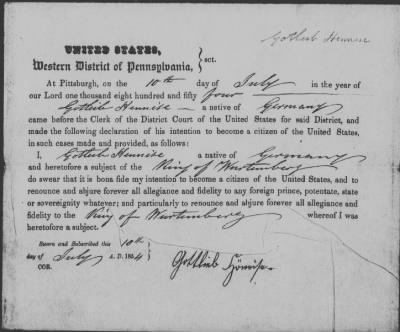 Gotlieb Hennise
UNITED STATES,
Western District of Pennsylvania, } sct.
At Pittsburgh, on the 10th day of July in the year of
our Lord one thousand eight hundred and fifty four
Gotlieb Hennise — a native of Germany
came before the Clerk of the District Court of the United States for said District, and
made the following declaration of his intention to become a citizen of the United States,
in such cases made and provided, as follows:
I, Gotlieb Hennise a native of Germany
and heretofore a subject of the King of Wurtemberg
do swear that it is bona fide my intention to become a citizen of the United States, and to
renounce and abjure forever all allegiance and fidelity to any foreign prince, potentate, state
or sovereignty whatever; and particularly to renounce and abjure forever all allegiance and
fidelity to the King of Wurtemberg whereof I was
heretofore a subject.
Sworn and Subscribed this 10th
day of July A. D. 1854
COR. Gottlieb